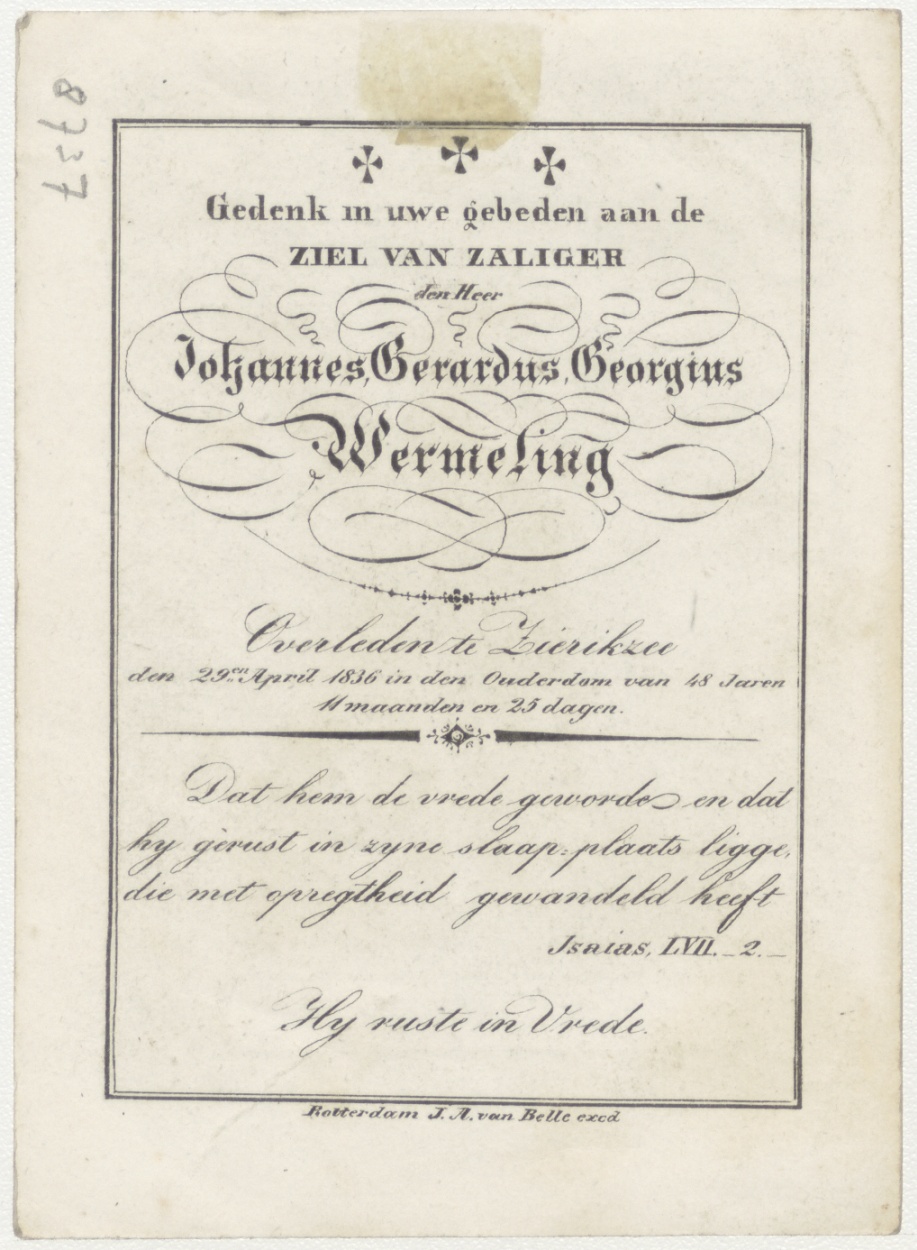 8737
Gedenk in uwe gebeden aan de
ZIEL VAN ZALIGER
den Heer
Johannes, Gerardus, Georgius
Wermeling
Overleden te Zierikzee
den 29en April 1836 in den Ouderdom van 48 Jaren
11 maanden en 25 dagen.
Dat hem de vrede geworde en dat
hy gerust in zyne slaap-plaats ligge,
die met opregtheid gewandeld heeft
Isaias, LVII. _ 2. _
Hy ruste in Vrede.
Rotterdam J. A. van Belle excd